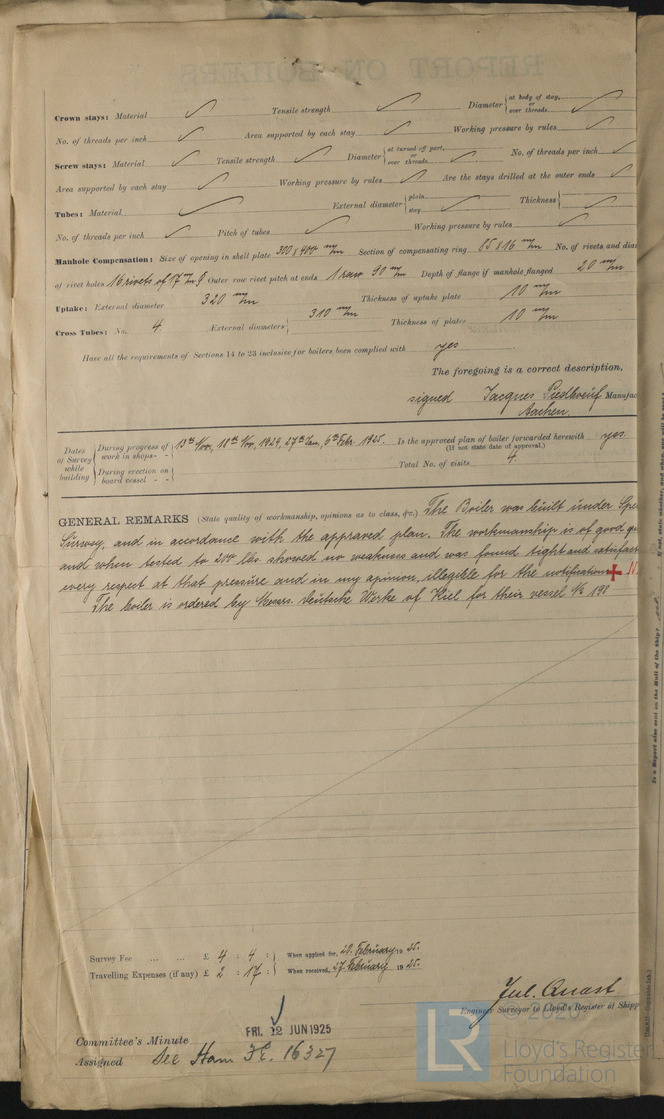 REPORT ON BOILERS
Crown stays: Material ✓ Tensile strength ✓ Diameter { at body of stay, or over threads ✓
No. of threads per inch ✓ Area supported by each stay ✓ Working pressure by rules ✓
Screw stays: Material ✓ Tensile strength ✓ Diameter { at turned off part, or over threads ✓ No. of threads per inch ✓
Area supported by each stay ✓ Working pressure by rules ✓ Are the stays drilled at the outer ends ✓
Tubes: Material ✓ External diameter { plain stay ✓ Thickness { ✓
No. of threads per inch ✓ Pitch of tubes ✓ Working pressure by rules ✓
Manhole Compensation: Size of opening in shell plate 300 x 400 m/m Section of compensating ring 85 x 16 m/m No. of rivets and dia
of rivet holes 16 rivets of 17 m/m Outer row rivet pitch at ends 1 row 90 m/m Depth of flange if manhole flanged 20 m/m
Uptake: External diameter 320 m/m Thickness of uptake plate 10 m/m
Cross Tubes: No. 4 External diameters { 310 m/m Thickness of plates 10 m/m
Have all the requirements of Sections 14 to 23 inclusive for boilers been complied with yes
The foregoing is a correct description,
signed Jacques Piedboeuf Manufac
Aachen.
Dates of Survey while building { During progress of work in shops - - During erection on board vessel - - } 13th Nov, 18th Nov, 1924, 27th Jan, 6th Febr. 1925. Is the approved plan of boiler forwarded herewith yes
(If not state date of approval.)
Total No. of visits 4.
GENERAL REMARKS (State quality of workmanship, opinions as to class, &c.) The Boiler was built under Spe
Survey, and in accordance with the approved plan. The workmanship is of good qu
and when tested to 200 lbs showed no weakness and was found tight and satisfact
every respect at that pressure and in my opinion, illegible for the notification +
The boiler is ordered by Messrs. Deutsche Werke of Kiel for their vessel No 198
Survey Fee ... ... £ 4 : 4 : When applied for, 20. February 1925.
Travelling Expenses (if any) £ 2 : 17 : When received, 27. February 1925.
Jul. Quast
Engineer Surveyor to Lloyd's Register of Shipp
Committee's Minute FRI. 12 JUN 1925
Assigned See Ham F.E. 16327
LR
© 2020
Lloyd's Register
Foundation